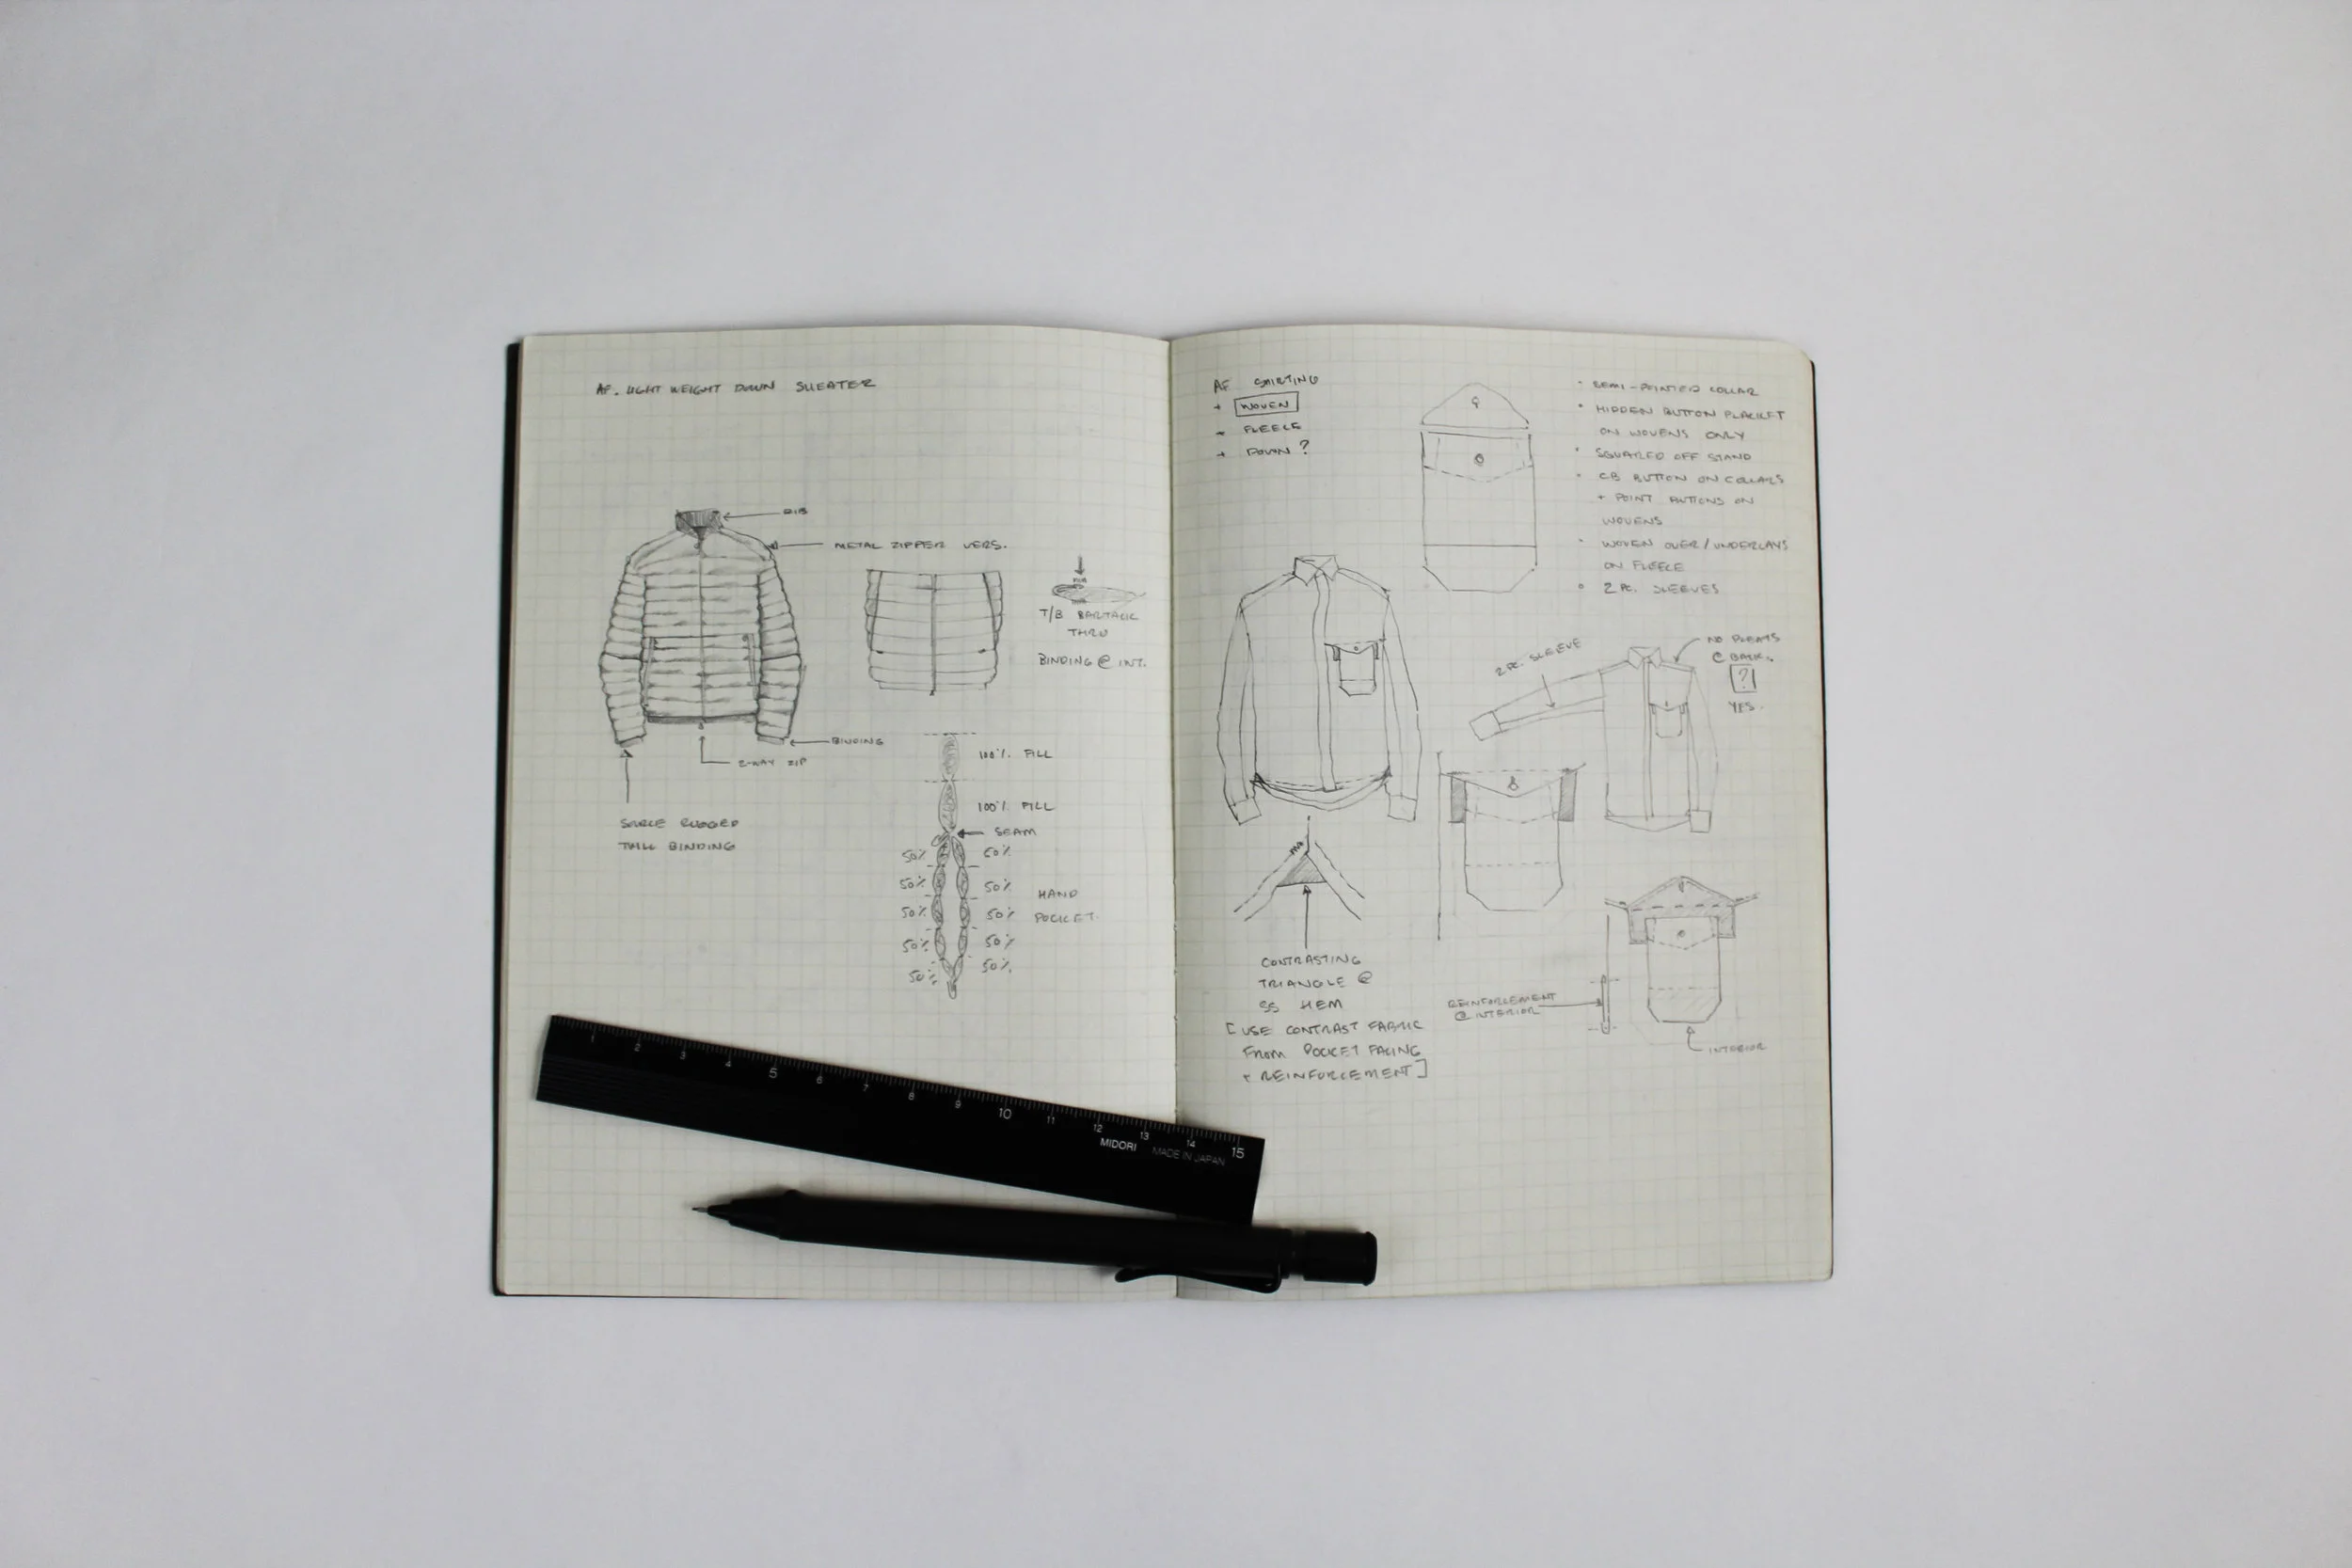 AF. LIGHT WEIGHT DOWN SWEATER
RIB
METAL ZIPPER VERS.
T/B BARTACK
THRU
BINDING @ INT.
BINDING
2-WAY ZIP
SOURCE RUGGED
TWILL BINDING
100% FILL
100% FILL
SEAM
50% 50%
50% 50%
50% 50%
50% 50%
50% 50%
HAND
POCKET
AF SHIRTING
+ WOVEN
+ FLEECE
+ DOWN ?
• SEMI-POINTED COLLAR
• HIDDEN BUTTON PLACKET
ON WOVENS ONLY
• SQUARED OFF STAND
• CB BUTTON ON COLLARS
+ POINT BUTTONS ON
WOVENS
• WOVEN OVER/UNDERLAYS
ON FLEECE
• 2 PC. SLEEVES
2 PC. SLEEVE
NO PLEATS
@ BACK.
?
YES.
CONTRASTING
TRIANGLE @
SS HEM
[USE CONTRAST FABRIC
FROM POCKET FACING
+ REINFORCEMENT]
REINFORCEMENT
@ INTERIOR
INTERIOR
1 2 3 4 5 6 7 8 9 10 11 12 13 14 15
MIDORI MADE IN JAPAN